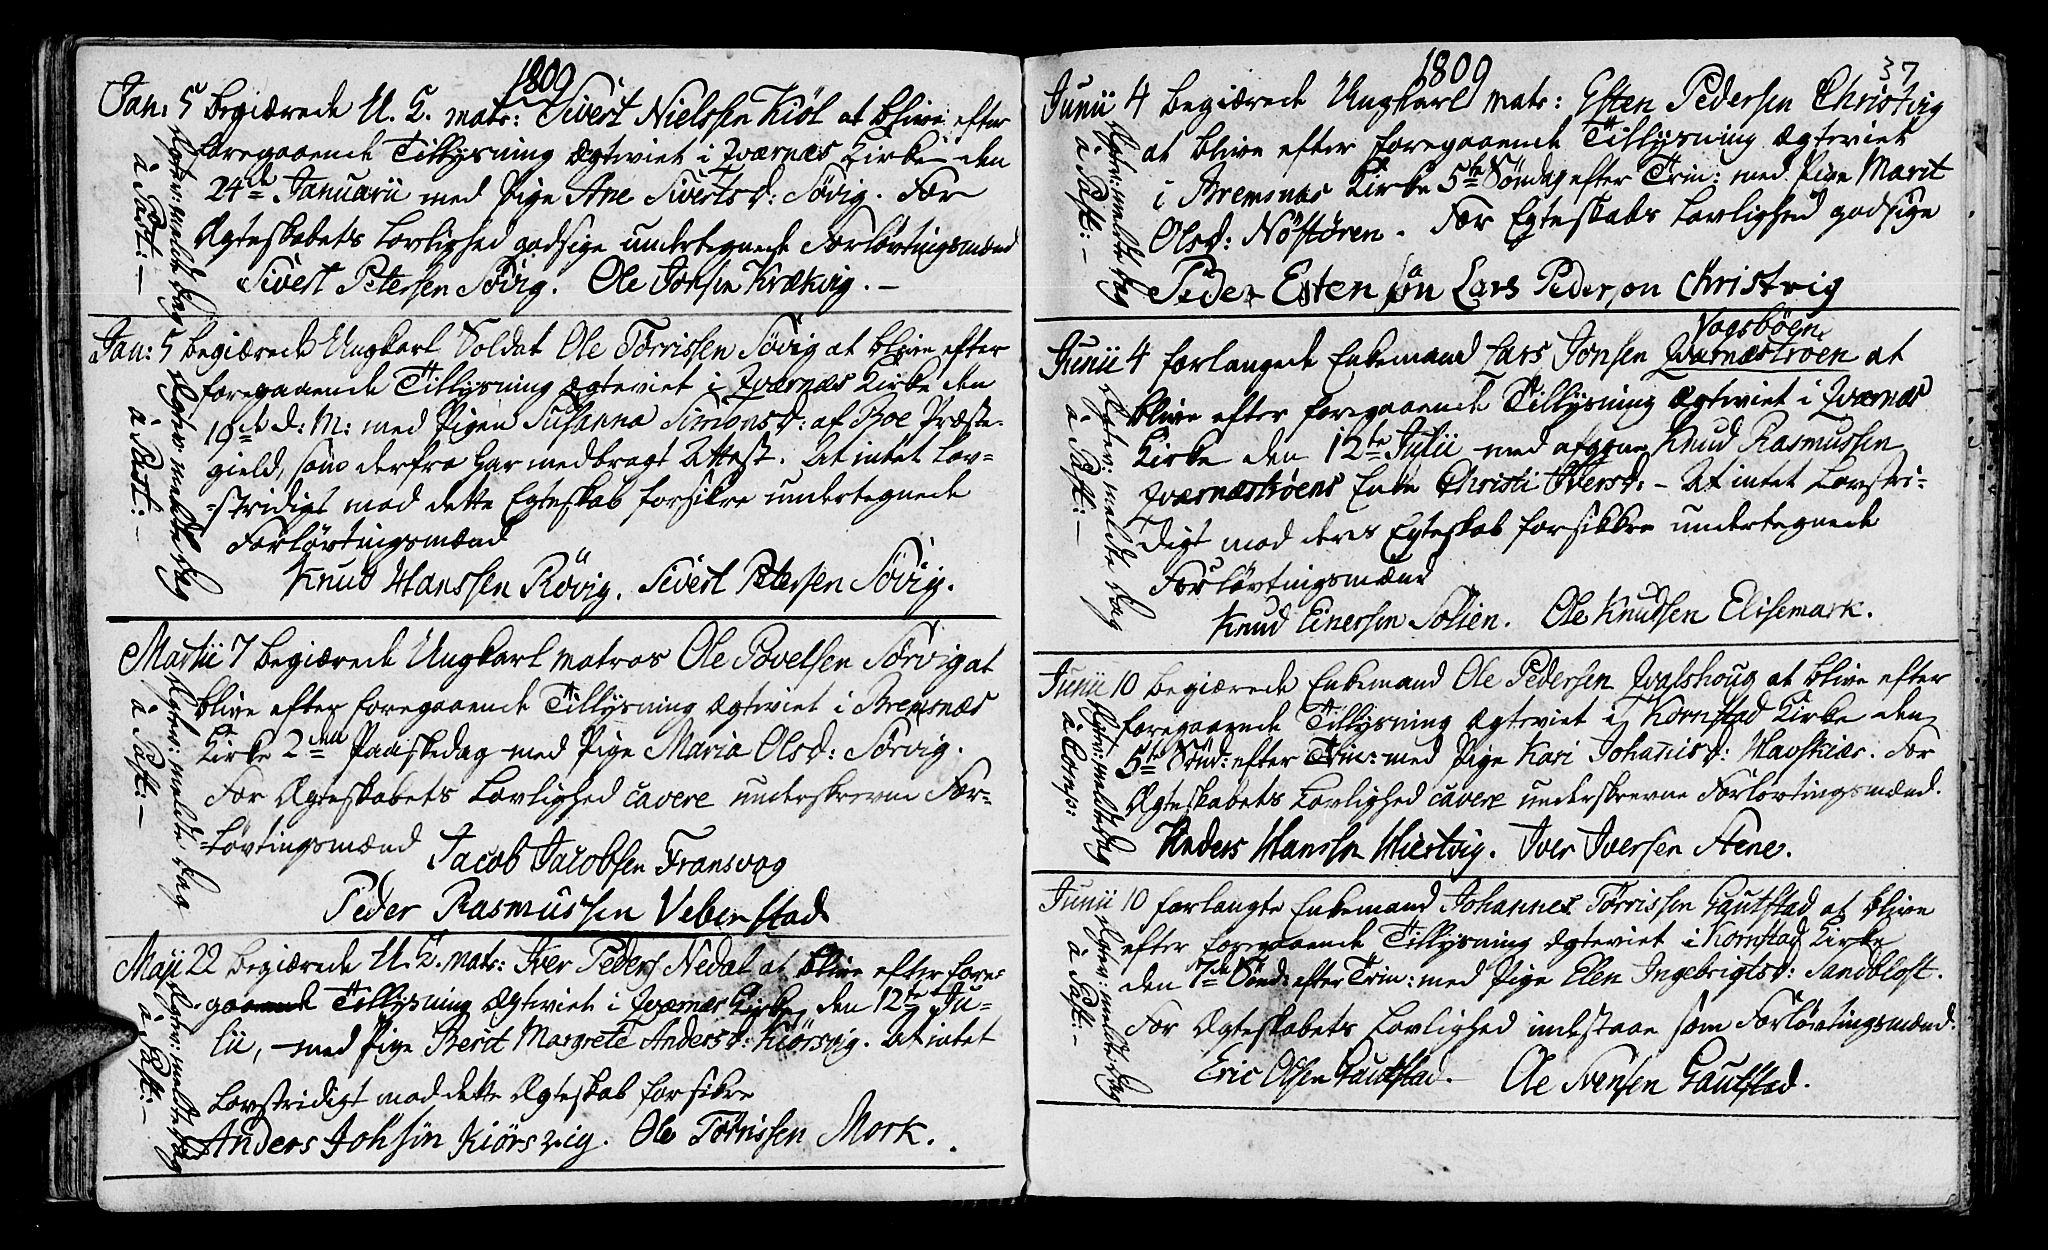 1809
Jan: 5 begiærede U. K. mats: Sivert Nielssen Kiøl at blive efter
foregaaende Tillysning Ægteviet i Qværnæs Kirke den
24de Januarii med Pige Ane Sivertsd: Søvig. For
Ægteskabets Lovlighed godsige undertegnede Forlovtingsmænd
Sivert Petersen Søvig. Ole Jonsen Krækvig. –
Copier: meldte dag
à Past: –
Jan: 5 begiærede Ungkarl Soldat Ole Tørrissen Søvig at blive efter
foregaaende Tillysning Ægteviet i Qværnæs Kirke den
19de d: M: med Pigen Susanna Simonsd: af Boe Præste-
gield, som derfra har medbragt Attest. At intet Lov-
-stridigt mod dette Egteskab forsikre undertegnede
Forløvtingsmænd
Knud Hanssen Røvig. Sivert Petersen Søvig.
à Past: –
Martii 7 begiærede Ungkarl matros Ole Povelsen Sørvig at
blive efter foregaaende Tillysning Ægteviet i Bremsnæs
Kirke 2den Paaskedag med Pige Maria Olsd: Sørvig.
For Ægteskabets Lovlighed cavere underskrevne For-
-løvtingsmænd Jacob Jacobsen Fransvog
Peder Rasmussen Veberstad
à Past: –
Maji 22 begiærede U. K. mats: Iver Peders Nedal at blive efter fore-
-gaaende Tillysning Ægteviet i Qværnæs Kirke den 12te Ju-
lii, med Pige Berit Margrete Andersd: Kiørsvig. At intet
Lovstridigt mod dette Ægteskab forsikre
Anders Johsøn Kiørsvig. Ole Tørrissen Mork.
à Past: –
1809
37
Junii 4 begiærede Ungkarl mats: Esten Pedersen Christvig
at blive efter foregaaende Tillysning Ægteviet
i Bremsnæs Kirke 5te Søndag efter Trin: med Pige Marit
Olsd: Nøstøren. For Egteskabs Lovlighed godsige
Peder Esten søn Lars Pederson Christvig
à Past: –
Vogsbøen
Junii 4 forlangede Enkemand Lars Jonsen Qværnæstroen at
blive efter foregaaende Tillysning Ægteviet i Qværnæs
Kirke den 12te Julii med afgne Knud Rasmussen
Qværnæstrøens Enke Christi Iversd: – At intet Lovstri-
digt mod deres Egteskab forsikkre undertegnede
Forløvtingsmænd
Knud Einersen Solien. Ole Knudsen Elisemark.
à Past: –
Junii 10 begiærede Enkemand Ole Pedersen Qvalshoug at blive efter
foregaaende Tillysning Ægteviet i Kornstad Kirke den
5te Sønd: efter Trin: med Pige Kari Johanisd: Havskiær. For
Ægteskabets Lovlighed cavere underskrevne Forløvtingsmænd.
Anders Hanssen Hiertvig. Iver Iversen Stene.
Junii 10 forlangte Enkemand Johannes Tørrissen Gautstad at blive
efter foregaaende Tillysning Ægteviet i Kornstad Kirke
den 7de Sønd: efter Trin: med Pige Elen Ingebrigtsd: Sandblost.
For Ægteskabets Lovlighed indestaae som Forløvtingsmænd.
Eric Olsen Gautstad. – Ole Svensen Gautstad.
à Past: –